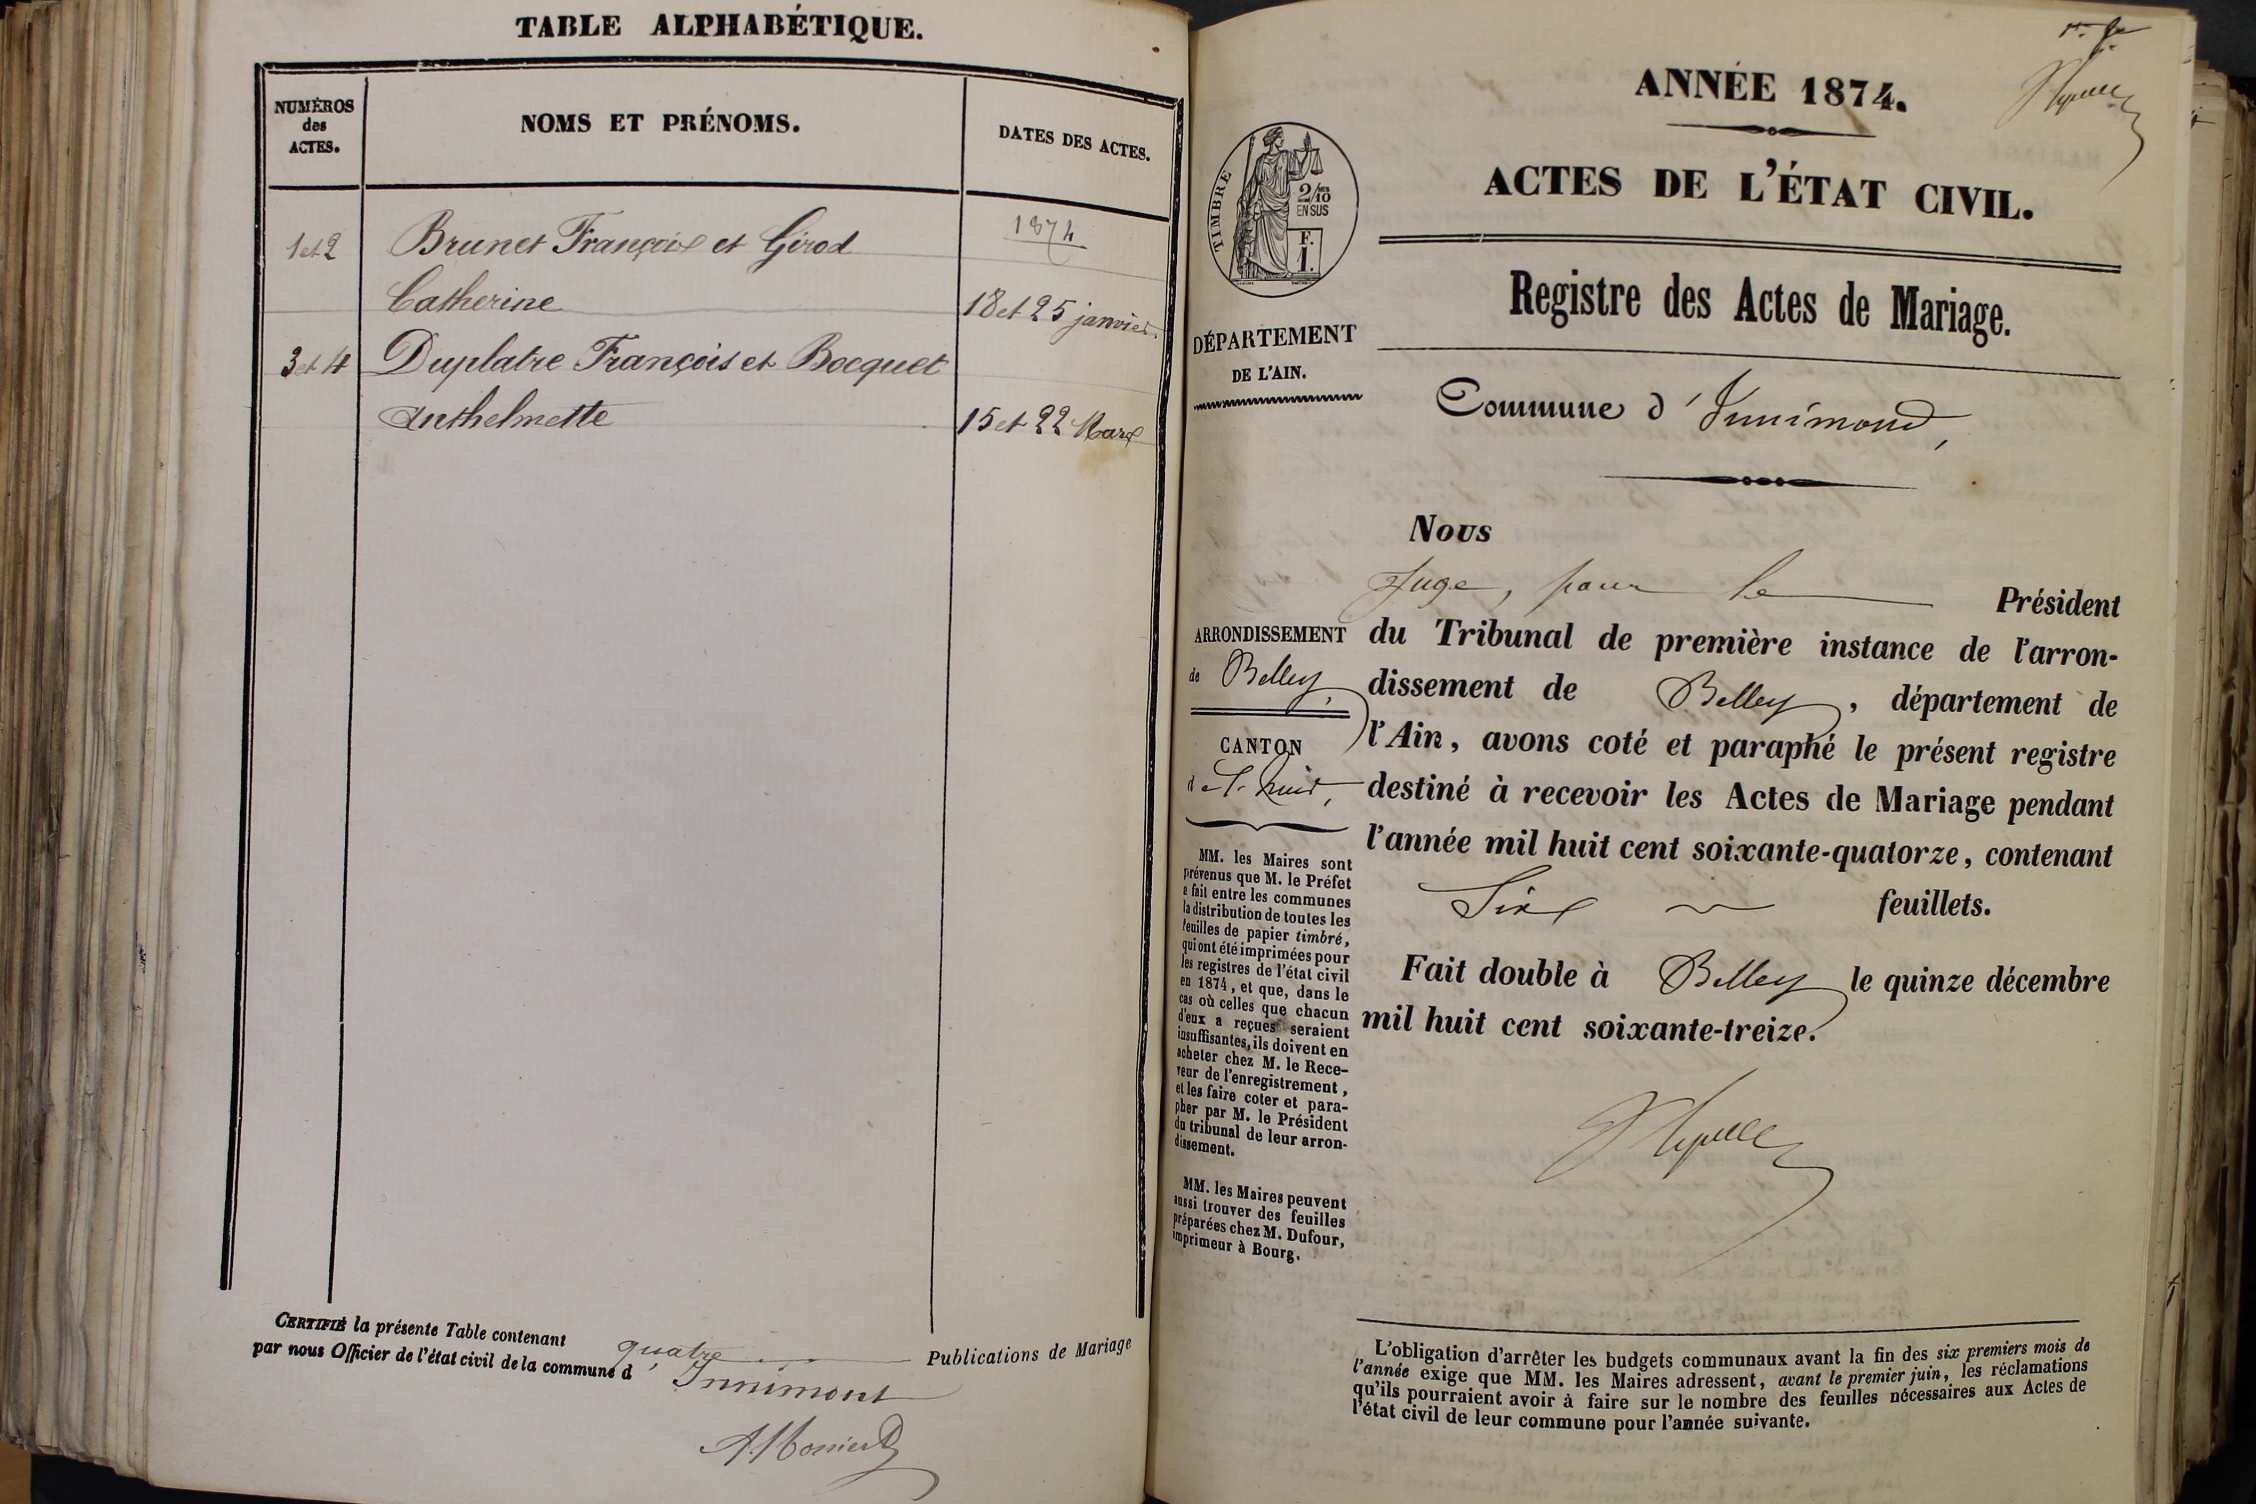 TABLE ALPHABÉTIQUE.
NUMÉROS
des
ACTES.
NOMS ET PRÉNOMS.
DATES DES ACTES.
1874
1 et 2
Brunet François et Girod
Catherine
18 et 25 janvier.
3 et 4
Duplatre François et Bocquet
Anthelmette
15 et 22 Mars
CERTIFIÉ la présente Table contenant quatre Publications de Mariage
par nous Officier de l'état civil de la commune d'Innimont
ANNÉE 1874.
ACTES DE L'ÉTAT CIVIL.
TIMBRE
2/10
EN SUS
F.
1.
Registre des Actes de Mariage.
DÉPARTEMENT
DE L'AIN.
Commune d'Innimond,
Nous
Juge, pour le Président
ARRONDISSEMENT
de Belley,
CANTON
du Tribunal de première instance de l'arron-
dissement de Belley, département de
l'Ain, avons coté et paraphé le présent registre
destiné à recevoir les Actes de Mariage pendant
l'année mil huit cent soixante-quatorze, contenant
Six feuillets.
Fait double à Belley le quinze décembre
mil huit cent soixante-treize.
MM. les Maires sont
prévenus que M. le Préfet
a fait entre les communes
la distribution de toutes les
feuilles de papier timbré,
qui ont été imprimées pour
les registres de l'état civil
en 1874, et que, dans le
cas où celles que chacun
d'eux a reçues seraient
insuffisantes, ils doivent en
acheter chez M. le Rece-
veur de l'enregistrement,
et les faire coter et para-
pher par M. le Président
du tribunal de leur arron-
dissement.
MM. les Maires peuvent
aussi trouver des feuilles
préparées chez M. Dufour,
imprimeur à Bourg.
L'obligation d'arrêter les budgets communaux avant la fin des six premiers mois de
l'année exige que MM. les Maires adressent, avant le premier juin, les réclamations
qu'ils pourraient avoir à faire sur le nombre des feuilles nécessaires aux Actes de
l'état civil de leur commune pour l'année suivante.